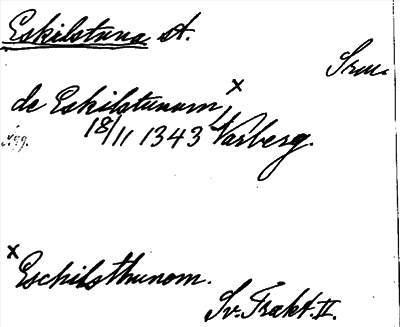 Eskilstuna st.
Srm.
de Eskilstunum, x
18/11 1343 Varberg.
x Eschilsthunom.
Sv. Trakt. II.